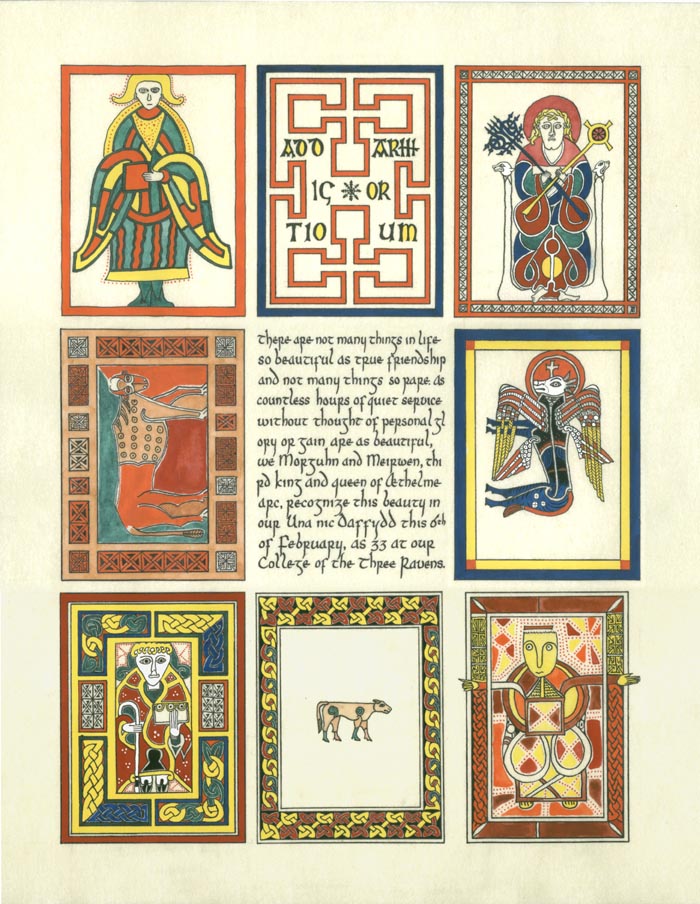 ADD ARM
IC OR
TIO UM
there are not many things in life
so beautiful as true friendship
and not many things so rare. as
countless hours of quiet service
without thought of personal gl
ory or gain are as beautiful,
we Morguhn and Meirwen, thi
rd king and queen of Æthelme
arc, recognize this beauty in
our Una nic Daffydd this 6th
of February, as 33 at our
College of the Three Ravens.